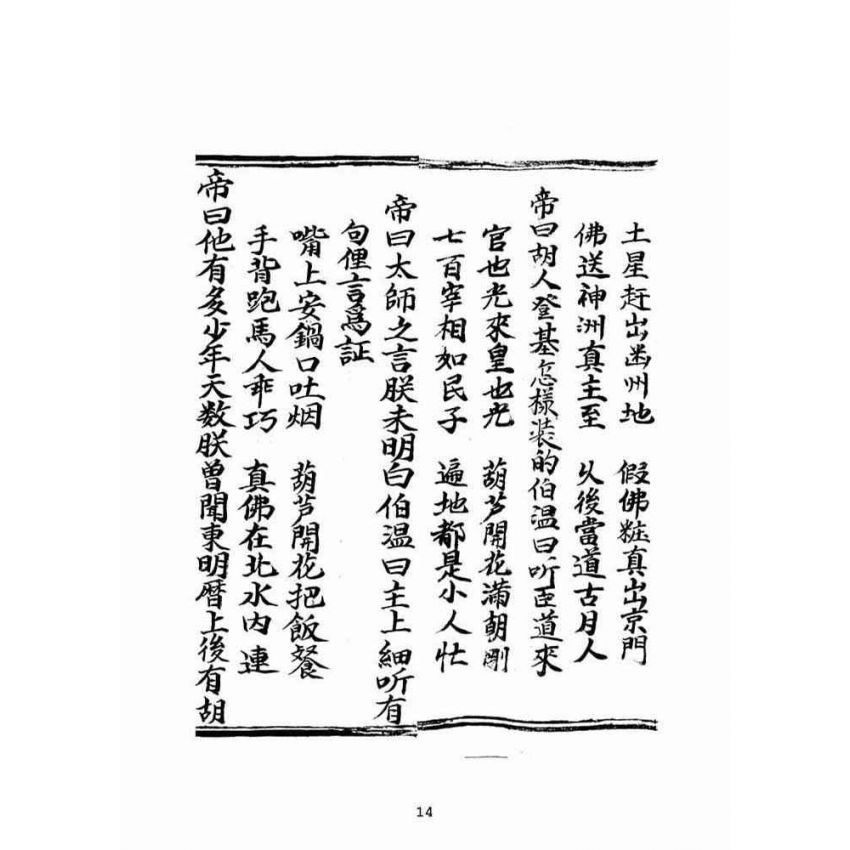 土星赶出幽州地 假佛粧真出京門
佛送神洲真主至 久後當道古月人
帝曰胡人登基怎樣装的伯温曰听臣道來
官也光來皇也光 葫芦開花滿朝剛
七百宰相如民子 遍地都是小人忙
帝曰太師之言朕未明白伯温曰主上細听有
句俚言爲証
嘴上安鍋口吐烟 葫芦開花把飯餐
手背跑馬人乖巧 真佛在北水内連
帝曰他有多少年天数朕曾聞東明曆上後有胡
14